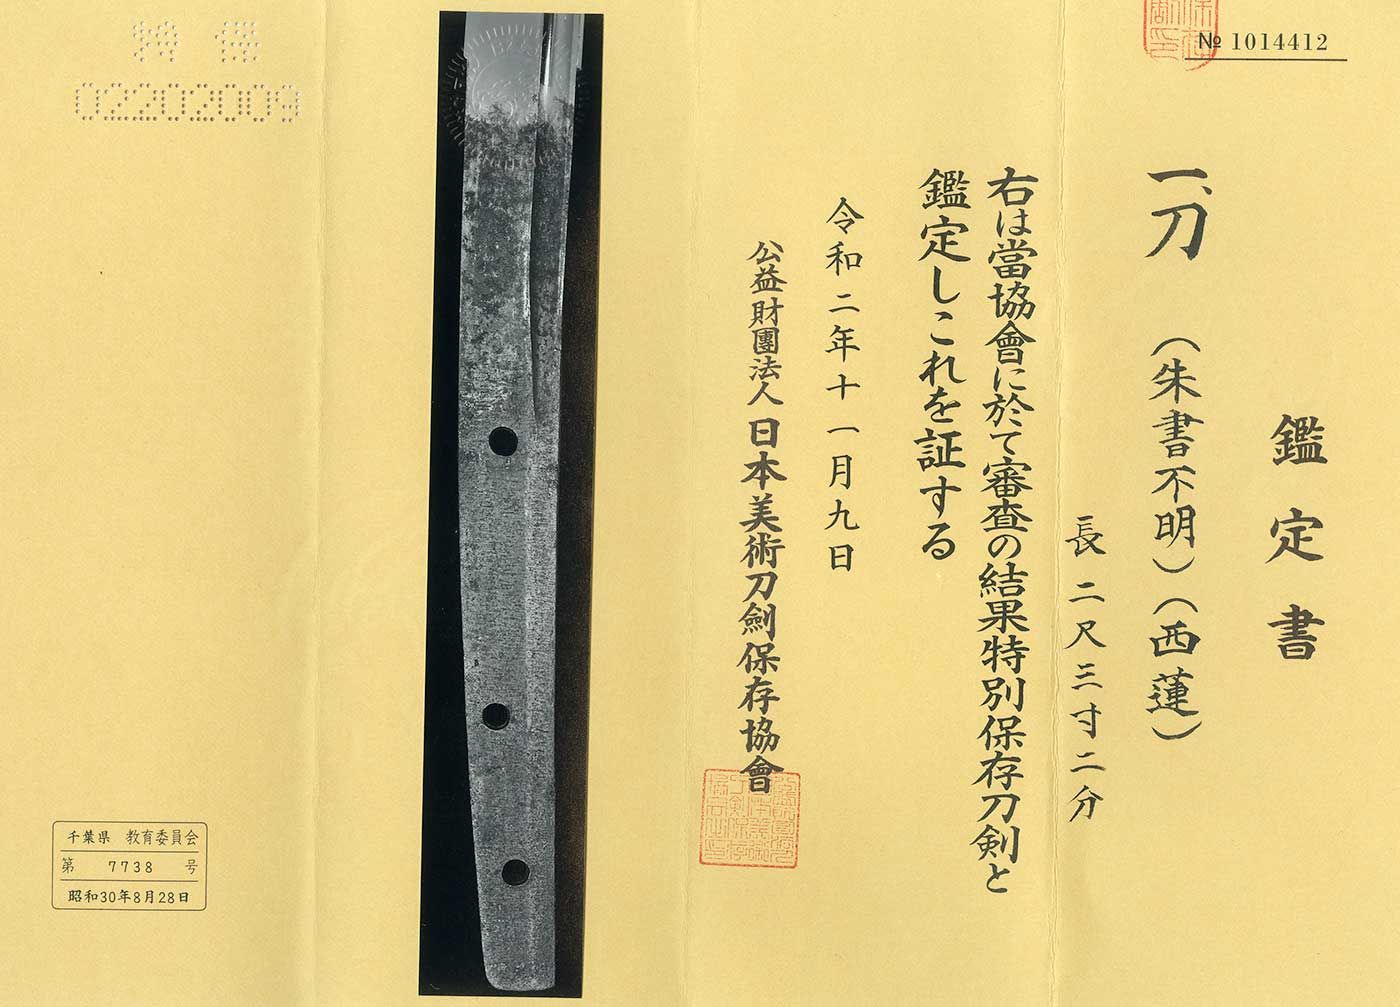 № 1014412
鑑定書
一、刀 （朱書不明）（西蓮）
長二尺三寸二分
右は當協會に於て審査の結果特別保存刀剣と
鑑定しこれを証する
令和二年十一月九日
公益財團法人 日本美術刀劍保存協會
特 保
02202009
千葉県 教育委員会
第 7738 号
昭和30年8月28日